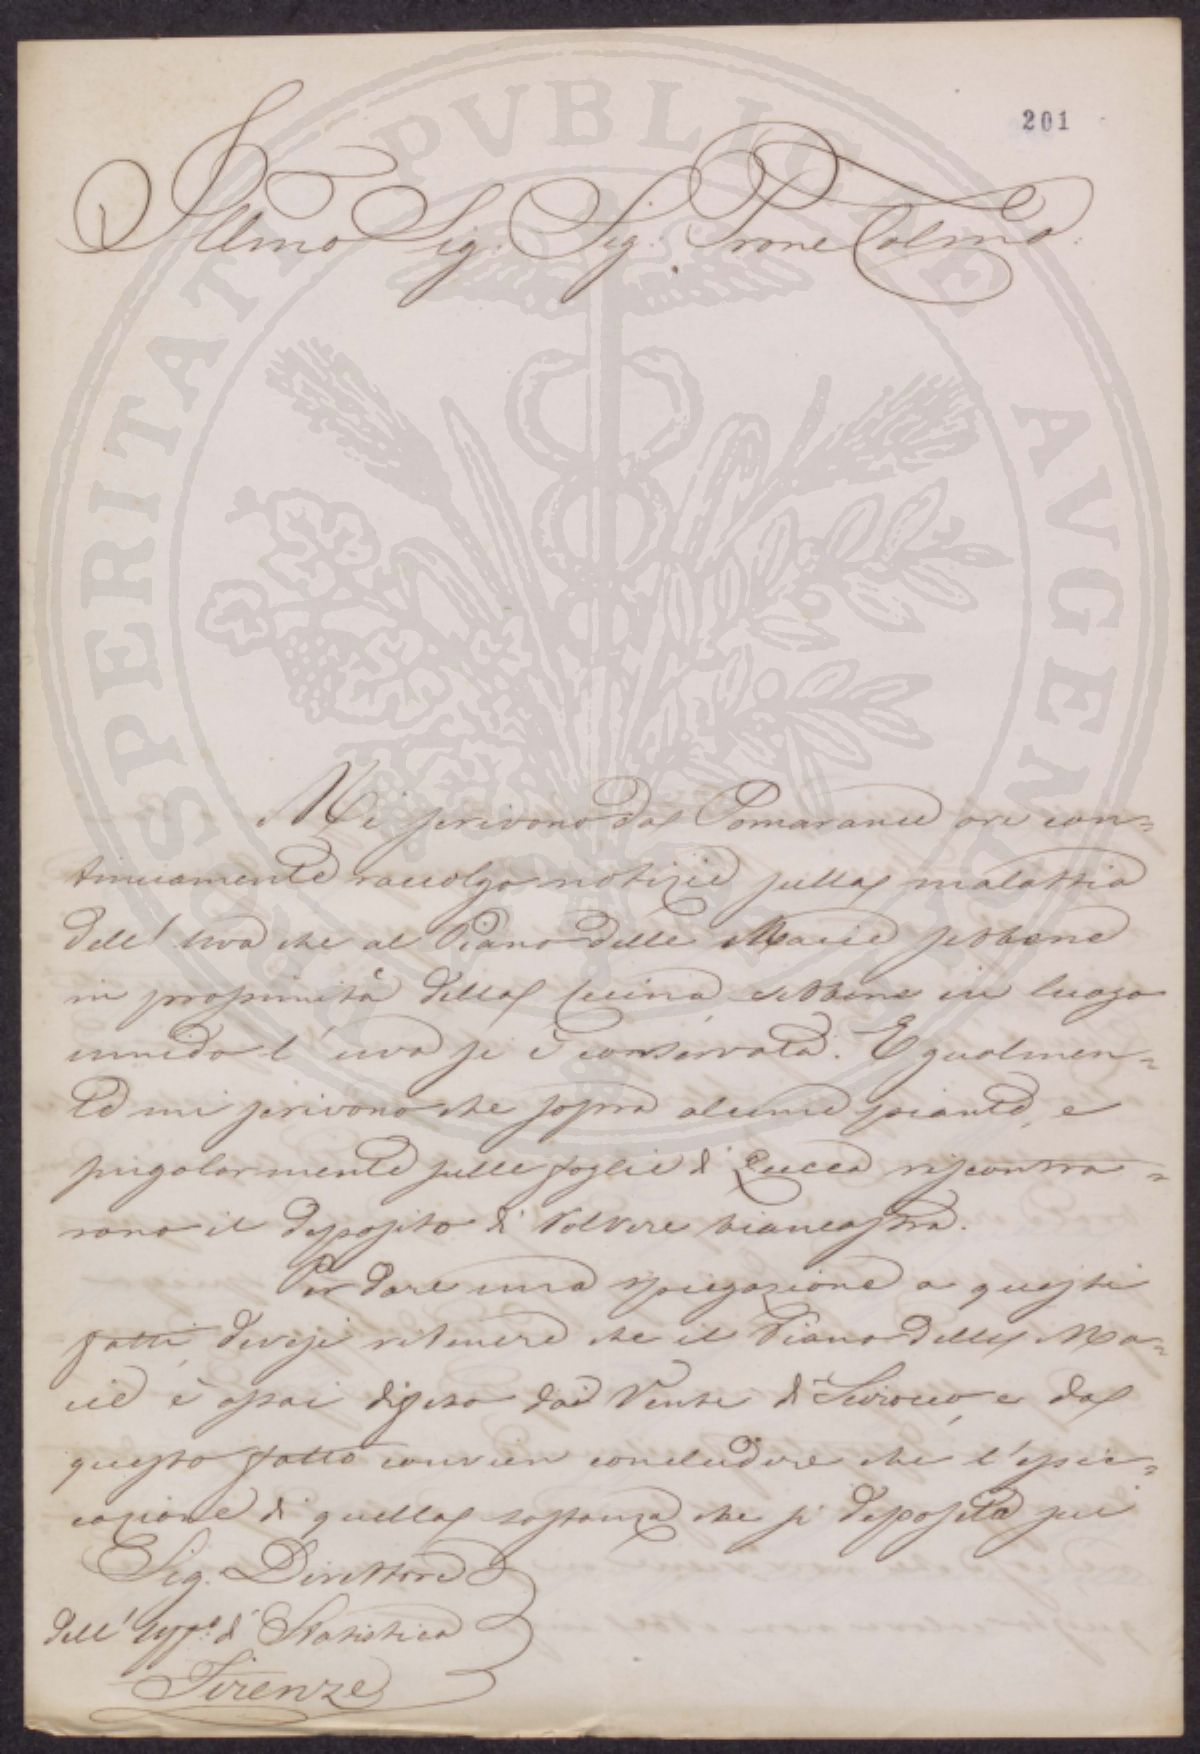 201
Illmo Sig. Sig. Prone Colmo
Mi scrivono da Pomarance ove con=
tinuamente raccolgo notizie sulla malattia
dell' uva che al Piano delle Macie sebbene
in prossimità della Cecina, sebbene in luogo
umido l' uva si è conservata. Egualmen=
te mi scrivono che sopra alcune piante, e
singolarmente sulle foglie di Zucca riscontra=
rono il deposito di Polvere biancastra.
Per dare una spiegazione a questi
fatti, devesi ritenere che il Piano delle Ma=
cie è assai difeso dai Venti di Scirocco, e da
questo fatto convien concludere che l'
cazione di quella sostanza che si deposita sui
Sig. Direttore
dell' Uffo. di Statistica
Firenze
PROSPERITATI PVBLICAE AVGENDAE